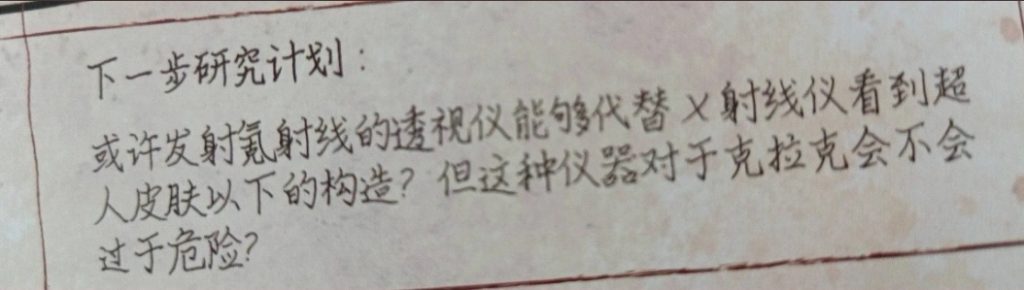 下一步研究计划：
或许发射氪射线的透视仪能够代替X射线仪看到超
人皮肤以下的构造？但这种仪器对于克拉克会不会
过于危险？